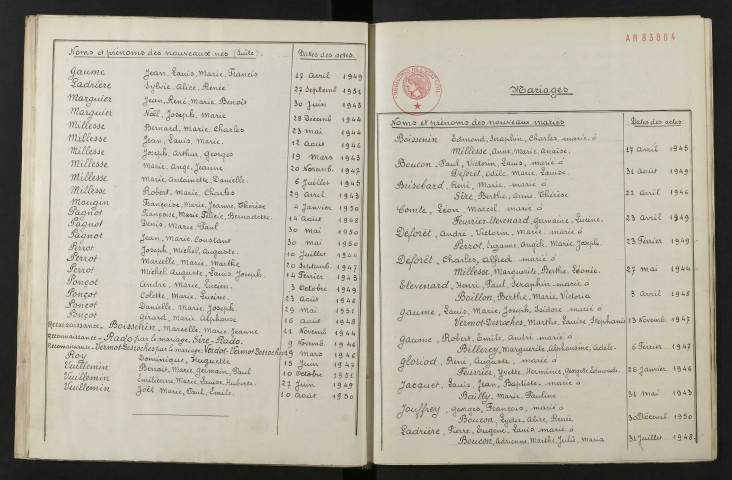 Noms et prénoms des nouveaux nés (Suite). Dates des actes.
Gaume Jean, Louis, Marie, Francis 17 avril 1949
Ladrière Sylvie, Alice, Renée 27 Septemb 1951
Marguier Jean, René, Marie, Benoit 30 juin 1943
Marguier Noël, Joseph, Marie 28 Décemb 1944
Millesse Bernard, Marie, Charles 23 mai 1944
Millesse Jean, Louis, Marie. 12 août 1946
Millesse Joseph, Arthur, Georges 19 Mars 1943
Millesse Marie, Ange, Jeanne 20 Novemb. 1947
Millesse Marie, Antoinette, Danielle. 6 Juillet 1945
Millesse Robert, Marie, Charles 29 avril 1943
Mougin Françoise, Marie, Jeanne, Thérèse 4 Janvier 1950
Pagnot Françoise, Marie, Bernadette. 14 Août 1948
Pagnot Denis, Marie, Paul 30 mai 1950
Pagnot Jean, Marie, Constant 30 mai 1950
Perrot Joseph, Michel, Auguste. 10 Juillet 1944
Perrot Marcelle, Marie, Marthe 20 Septemb. 1947
Perrot Michel, Auguste, Louis, Joseph. 14 Février 1943
Ponçot André, Marie, Lucien. 3 Octobre 1949
Ponçot Colette, Marie, Lucine. 23 Août 1946
Ponçot Danielle, Marie, Joseph. 29 mai 1951
Ponçot Gérard, Marie, Alphonse 16 août 1948
Reconnaissance. Boissenin, Marcelle, Marie, Jeanne 11 Novemb 1944
Reconnaissance. Rado par le mariage. Sire. Rado. 9 Novemb 1946
Reconnaissance. Vermot-Desroches par le mariage. Verdot-Vermot-Desroches 19 Mars 1946
Roy Dominique, Huguette 15 Juin 1947
Vuillemin Benoit, Marie, Germain, Paul 10 Octobre 1951
Vuillemin Emilienne, Marie, Louise, Huberte. 27 Juin 1949
Vuillemin Joël, Marie, Paul, Emile. 10 Août 1950
AM 83804
Mariages
Noms et prénoms des nouveaux mariés Dates des actes
Boissenin Edmond, Séraphin, Charles, marié à
Millesse, Anne, Marie, Anaïse. 17 avril 1945
Boucon, Paul, Victorin, Louis, marié à
Deforêt, Odile, Marie, Louise. 31 Août 1949
Brischard, René, Marie, marié à
Sire, Berthe, Anne, Thérèse 22 avril 1946
Comte, Léon, Marcel, marié à
Feuvrier-Elevenard, Germaine, Lucine. 23 avril 1949
Deforêt, André, Victorin, Marie, marié à
Perrot, Suzanne, Angèle, Marie, Joseph. 23 Février 1949
Deforêt, Charles, Alfred marié à
Millesse, Marguerite, Berthe, Léonie. 27 mai 1944
Elevenard, Henri, Paul, Séraphin marié à
Boillon, Berthe, Marie, Victoria 3 avril 1948
Gaume, Louis, Marie, Joseph, Isidore marié à
Vermot-Desroches, Marthe, Louise, Stéphanie 13 Novemb 1947
Gaume, Robert, Emile, André marié à
Billerey, Marguerite, Alphonsine, Adèle 6 Février 1947
Gloriod, René, Auguste, marié à
Feuvrier, Yvette, Herminie, Georgette, Edmonde. 26 Janvier 1946
Jacquet, Louis, Jean, Baptiste marié à
Bailly, Marie, Pauline 31 mai 1943
Jouffroy, Georges, François, marié à
Boucon, Lydie, Alice, Renée 30 Décemb 1950
Ladrière, Pierre, Eugène, Louis marié à
Boucon, Adrienne, Marthe, Julie, Maria 31 Juillet 1948